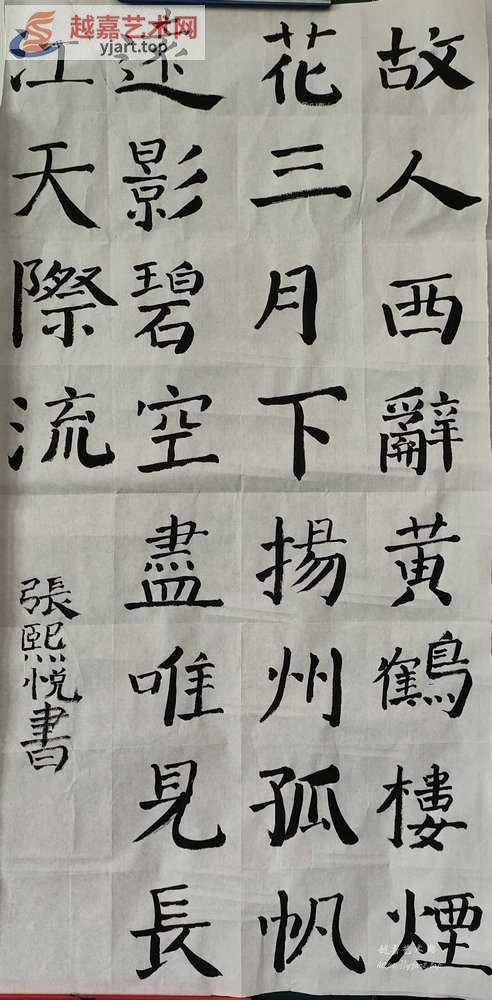 越嘉艺术网
yjart.top
故人西辭黄鶴樓煙
花三月下揚州孤帆
遠影碧空盡唯見長
江天際流
張熙悦書